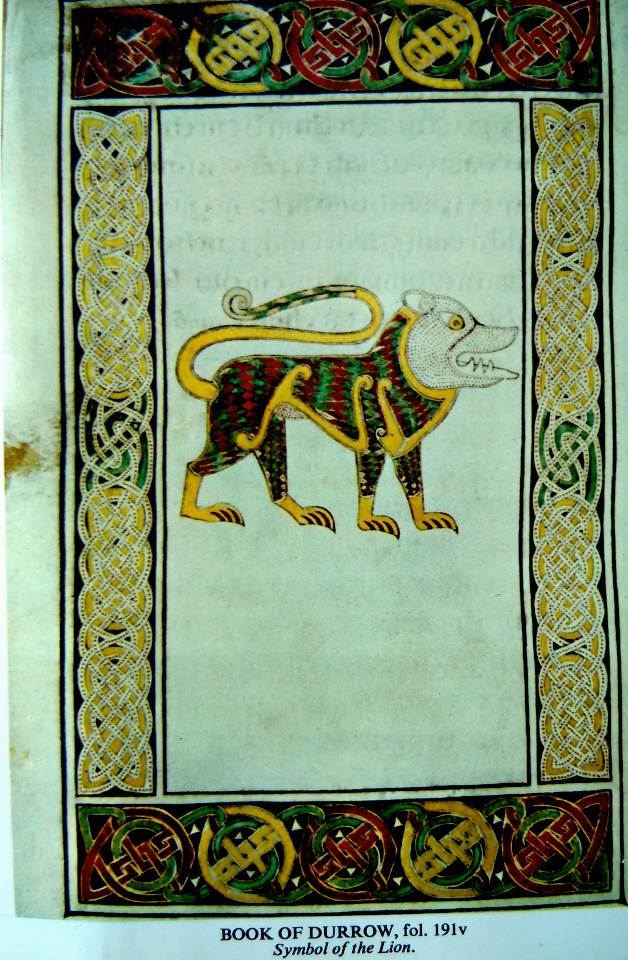 BOOK OF DURROW, fol. 191v
Symbol of the Lion.